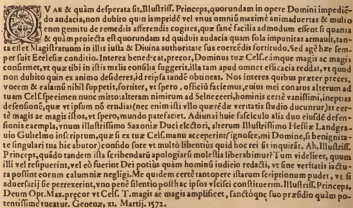 QVAE & quàm desperata sit, Illustriss. Princeps, quorundam in opere Domini impediẽ-
do audacia, non dubito quin iampridẽ vel vnus omniũ maximè animaduertas & multo
rum gemitu de remediis afferendis cogites, quæ sanè facilia admodum essent si quanta
& quàm proiecta est quorundam ad quiduis audacia quam sola impunitas armauit, tan-
ta esset Magistratuum in illis iusta & Diuina authoritate sua coercẽdis fortitudo, Sed agẽ hæc sem-
per fuit Ecclesiæ conditio. Interea benedicat, precor, Dominus tuæ Cels. eámque magis ac magis
confirmet, vt quæ tibi in isti malis consilia suggerit, illa tam apud omnes efficacia reddat, vt quod
non dubito quin ex animo desideres, id reipsa tandẽ obtineas. Nos interea quibus præter puram
vocem & calamũ nihil suppetit, fortiter, vt spero, officio faciemus, cuius mei conatus alterum ad
tuam Cels. specimen nunc mitto: alteram nimirum ad Selneceri, hominis certè vanissimi, ineptas
defensionẽ, quæ vt ipsum nõ erudias (nec enim isti vllo quæredæ veritatis studio ducuntur) at cer
tè magis ac magis istos, vt spero, mundo patefaciet. Adiunxi huic fasciculo alia duo eiusdẽ defen-
sionis exempla, vnum illustrissimo Saxoniæ Duci electori, alterum Illustrissimo Hessiæ Landgra-
uio Guilielmo inscriptum, quæ si ex tuæ Cels. manu acceperint (ignosce, mi Domine, si benignita-
te singulari tua hic abutor) confido fore vt multò libentiùs quid hoc rei sit inquirãt. Ah, Illustriss.
Princeps, quãdo tandem ista scribendarũ apologiarũ molestia liberabimur? Tum videlicet, quum
illi vel resipuerint, vel eò fuerint Dei potiùs quàm hominũ iudicio redacti, vt sine veritatis iactu-
ra possint eorum calumniæ negligi. Me quidem certè tantopere istarum scriptionum pudet, vt si
aduersarij se perrexerint, vno penè silentio post hac ipsos vlcisci constituerim. Illustriss. Princeps,
Deum Opt. Max. precor vt Cels. T. magis ac magis amplificet, sanctóque suo præsidio quàm po-
tentissimè tueatur. Geneuæ, xi. Martij, 1572.